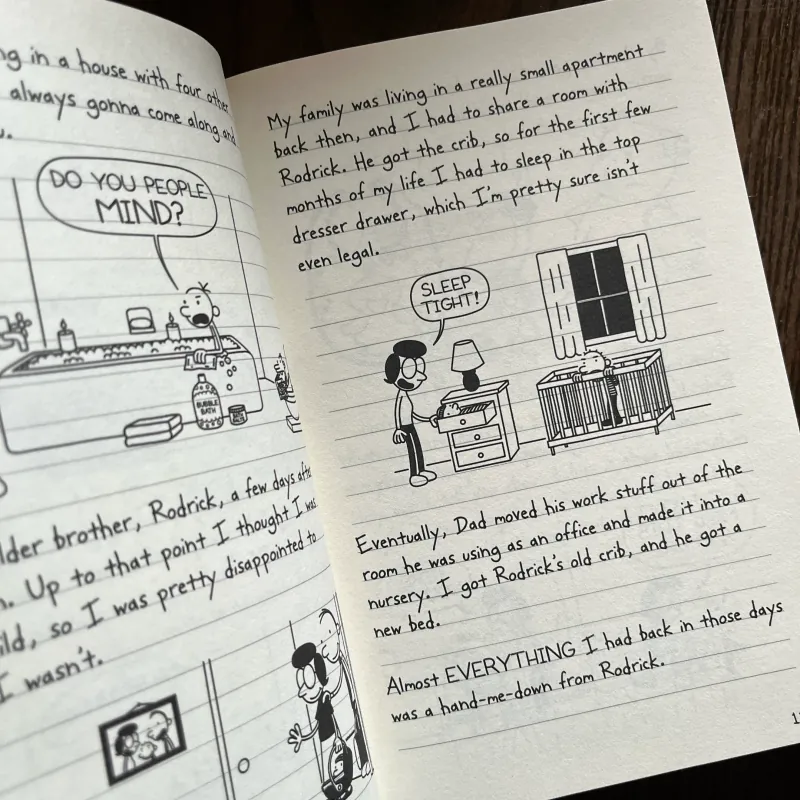 in a house with four other
always gonna come along and
DO YOU PEOPLE
MIND?
BUBBLE
BATH
brother, Rodrick, a few days
Up to that point I thought I was
so I was pretty disappointed to
I wasn't.
My family was living in a really small apartment
back then, and I had to share a room with
Rodrick. He got the crib, so for the first few
months of my life I had to sleep in the top
dresser drawer, which I'm pretty sure isn't
even legal.
SLEEP
TIGHT!
Eventually, Dad moved his work stuff out of the
room he was using as an office and made it into a
nursery. I got Rodrick's old crib, and he got a
new bed.
Almost EVERYTHING I had back in those days
was a hand-me-down from Rodrick.